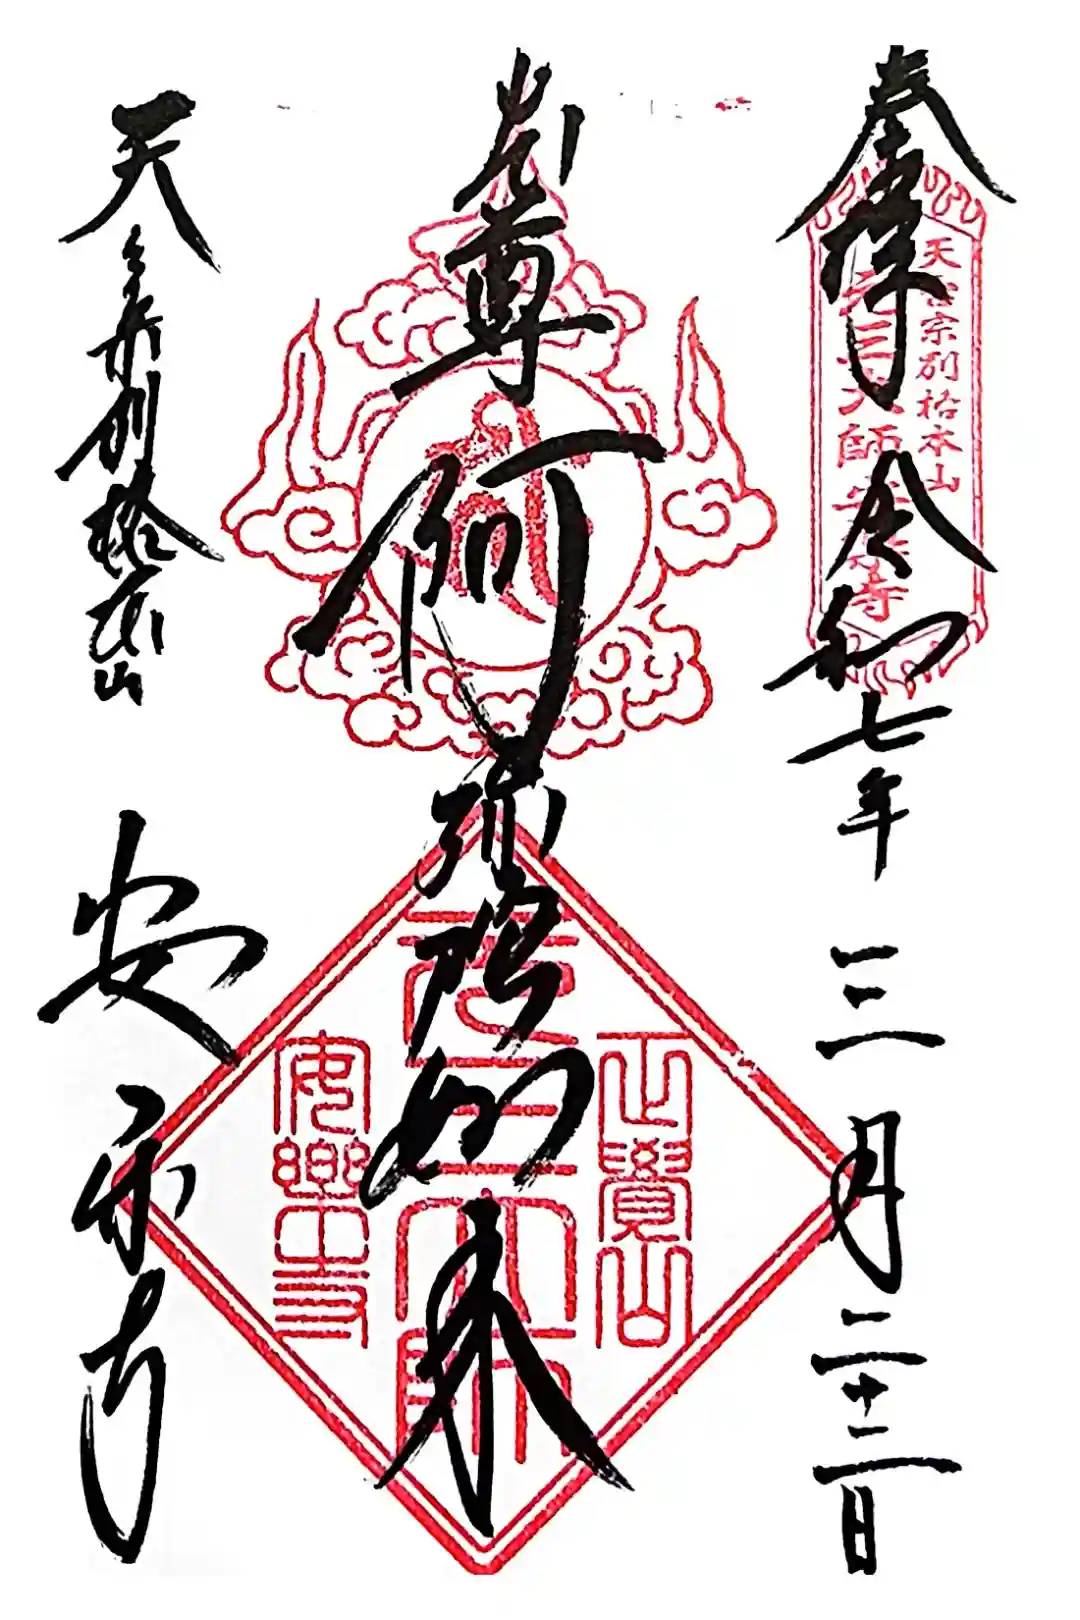 奉拝 令和七年 三月二十二日
天台宗別格本山
元三大師安楽寺
本尊 阿弥陀如来
正覺山
元三大師
安樂寺
天台宗別格本山 安楽寺